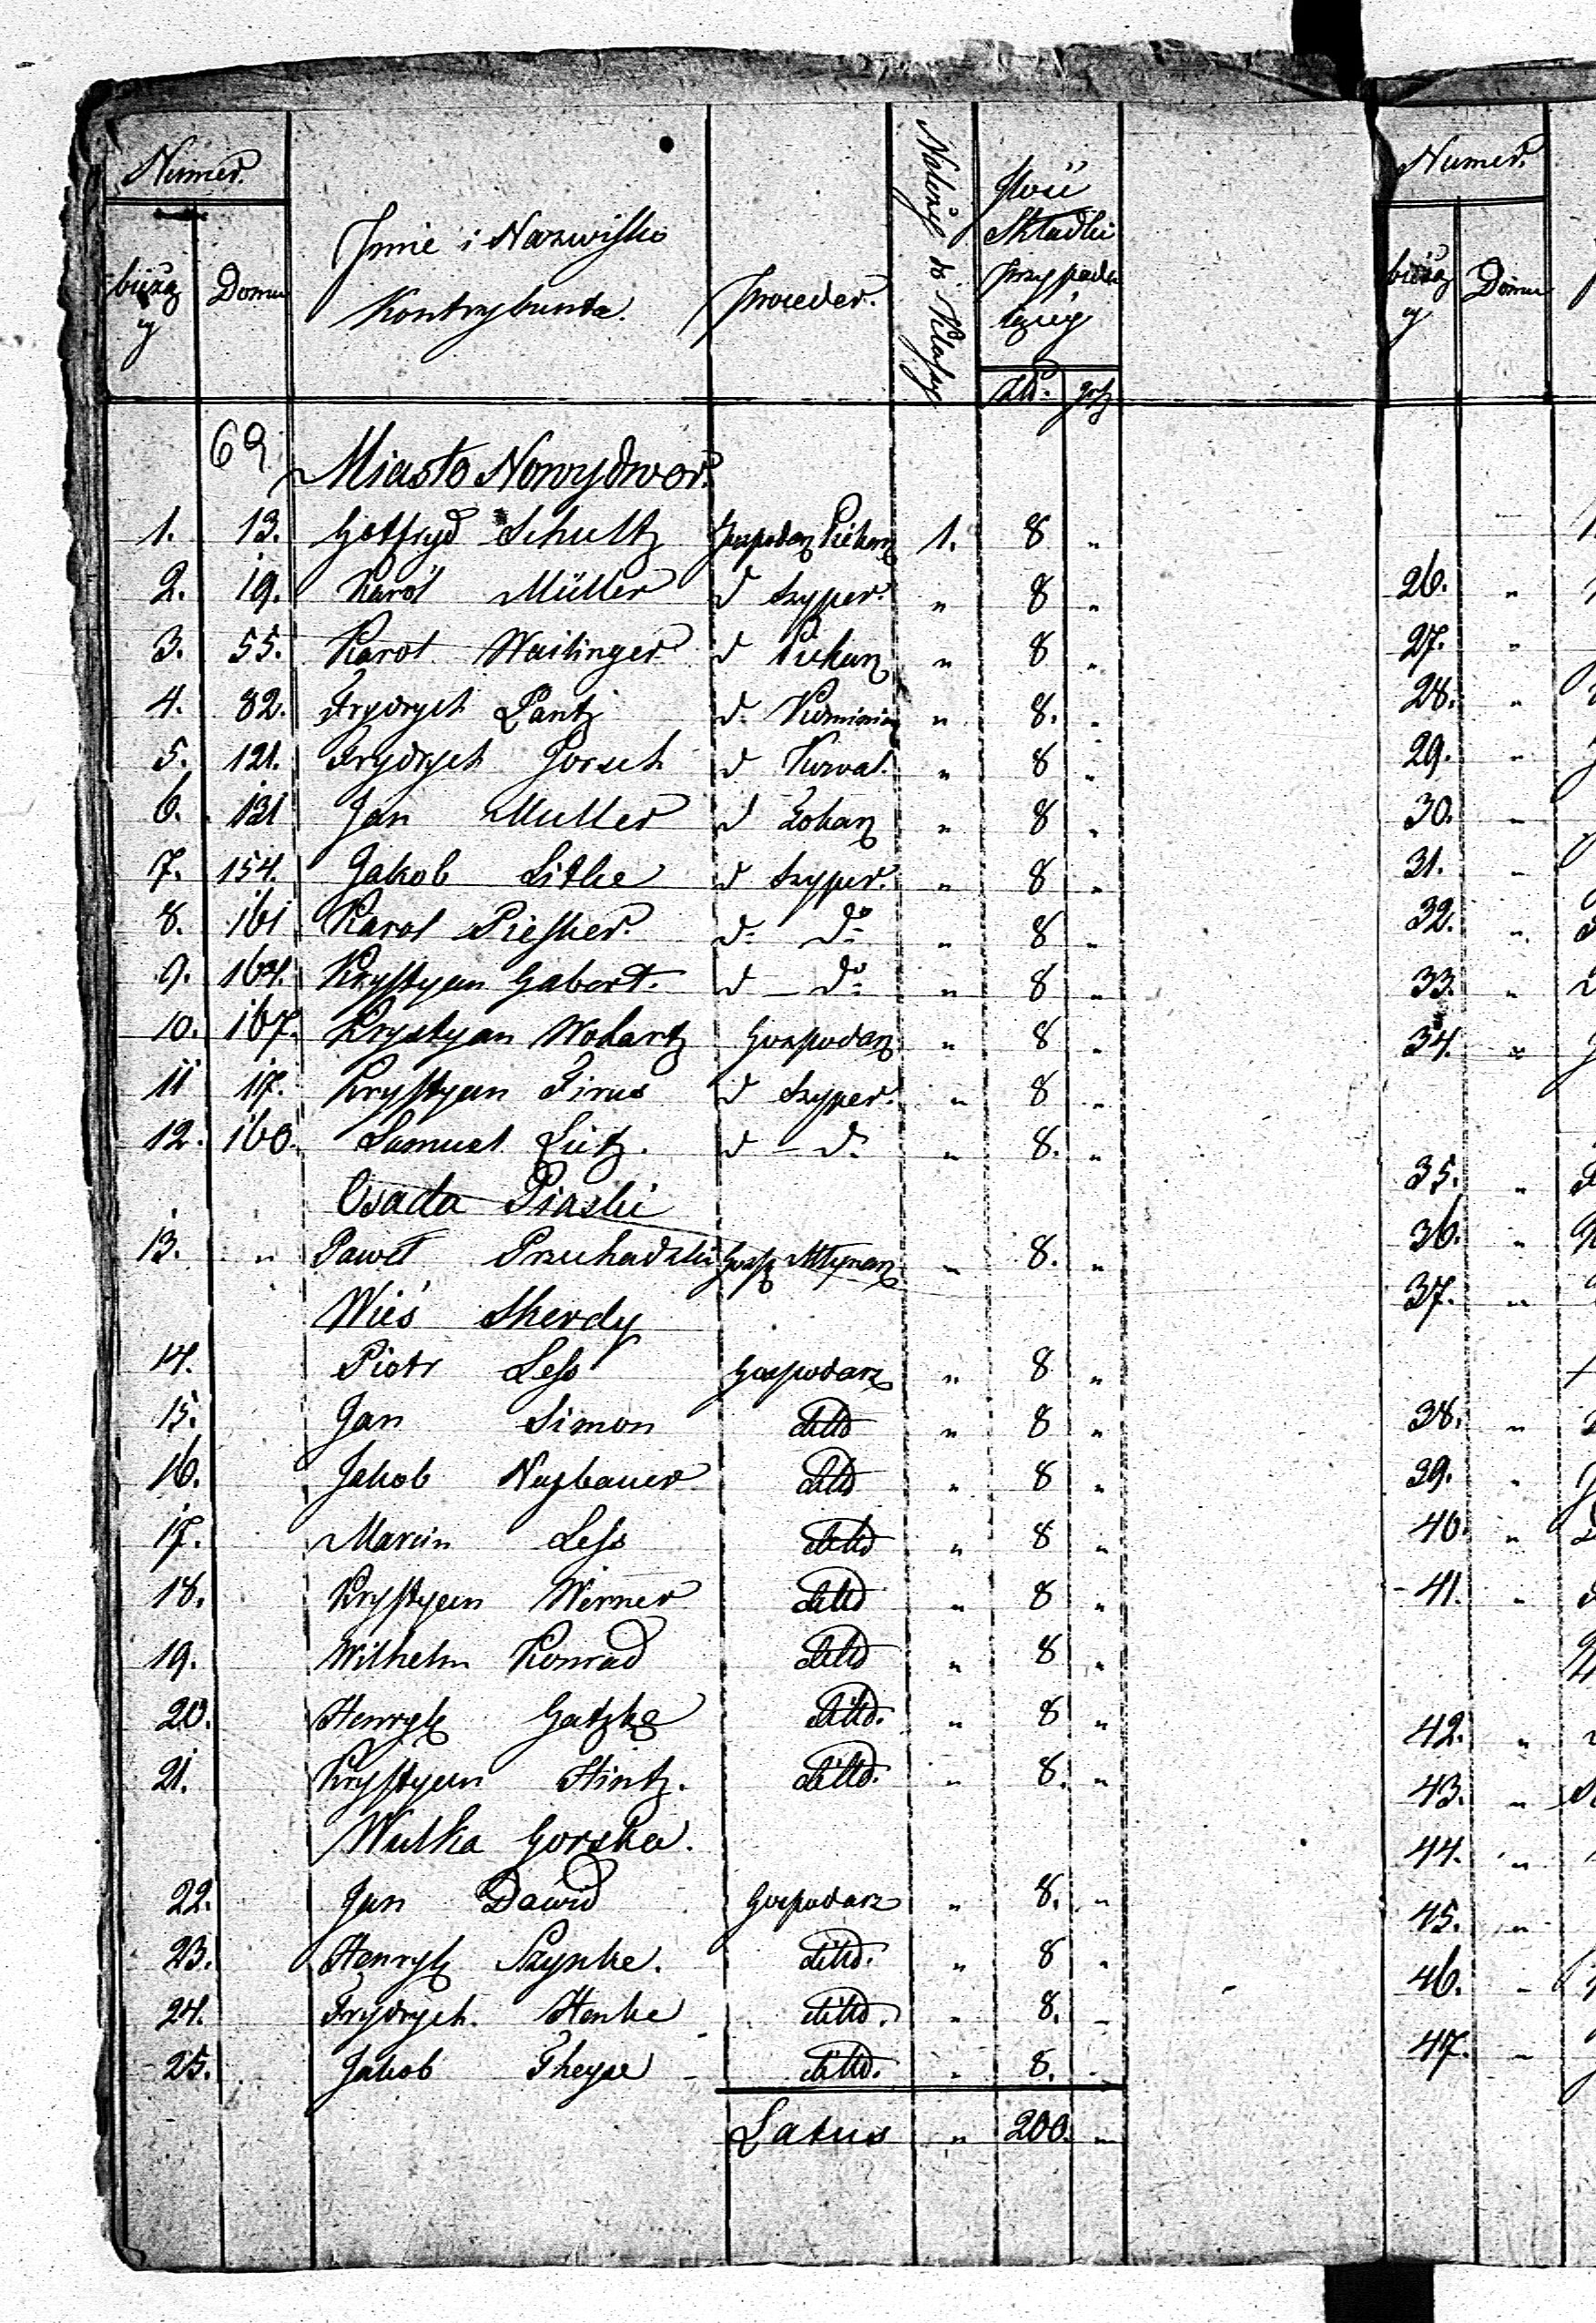 Numer.
bieżący Domu Imie i Nazwisko Kontrybuenta. Proceder. Należy do Klassy Ilość Składki przypadaiącéy
Złt. gr
69 Miasto Nowydwor.
1. 13. Gotfryd Schultz Gospodarz Piekarz 1. 8 "
2. 19. Karol Müller d Szyper. " 8 "
3. 55. Karol Waitinger d Piekarz " 8 "
4. 82. Frydrych Lantz d. " 8. "
5. 121. Frydrych Jorsch d Kowal. " 8 "
6. 131 Jan Muller d " 8 "
7. 154. Jakob Litke d Szyper. " 8 "
8. 161 Karol Piesker. do do " 8 "
9. 164. Krystyan Gabert. d – do " 8 "
10. 167. Krystyan Wohartz Gospodarz " 8 "
11 17. Krystyan Firus d Szyper. " 8 "
12. 160. Samuel Lutz. d – d. " 8. "
Osada Piaski
13. " Paweł Gosp Młynarz " 8. "
Wieś Skerdy
14. Piotr Less Gospodarz " 8 "
15. Jan Simon ditto " 8 "
16. Jakob Nusbauer ditto " 8 "
17. Marcin Less ditto " 8 "
18. Krystyan Werner ditto " 8 "
19. Wilhelm Konrad ditto " 8 "
20. Henryk Gatzke ditto. " 8 "
21. Krystyan Hintz. ditto. " 8. "
Wulka Gorska.
22. Jan Dawid Gospodarz " 8. "
23. Henryk Szynke. ditto. " 8 "
24. Frydrych. Henke ditto. " 8. "
25. Jakob Theyse ditto. " 8. "
Latus " 200. "
Numer.
bieżący Domu
26. "
27. "
28. "
29. "
30. "
31. "
32. "
33. "
34. "
35. "
36. "
37. "
38. "
39. "
40. "
41. "
42. "
43. "
44. "
45. "
46. "
47. "